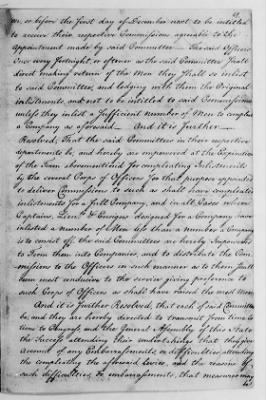 on, or before the first day of December next to be intitled
to receive their respective Commissions agreeable to the
Appointment made by said Committee — The said Officers
Once every Fortnight, or oftener as the said Committee shall
direct making return of the Men they shall so enlist
to said Committee, and lodging with them the Original
inlistments, and not to be intitled to said Commissions
unless they inlist a sufficient number of Men to complete
a Company as aforesaid — And it is further
Resolved, That the said Committee in their respective
departments be, and hereby are impowered at the Expiration
of the Term abovementioned for compleating Inlistments
by the several Corps of Officers for that purpose appointed
to deliver Commissions to such as shall have compleated
inlistments for a full Company, and in all Cases where
Captains, Lieuts. & Ensigns designed for a Company have
inlisted a number of Men less than a number a Company
is to consist of, the said Committees are hereby impowered
to Form them into Companies, and to distribute the Com-
missions to the Officers in such manner as to them shall
seem most conducive to the service giving preference to
such Corps of Officers as shall have raised the most Men
And it is further Resolved, that each of said Committees
be, and they are hereby directed to transmit from time to
time to Congress, and the General Assembly of this State
the Success attending their undertakings that they give
Account of any Embarrassments or difficulties attending
the compleating the aforesaid Levies, and the reasons of
such difficulties, or embarrassments, that measures may
be